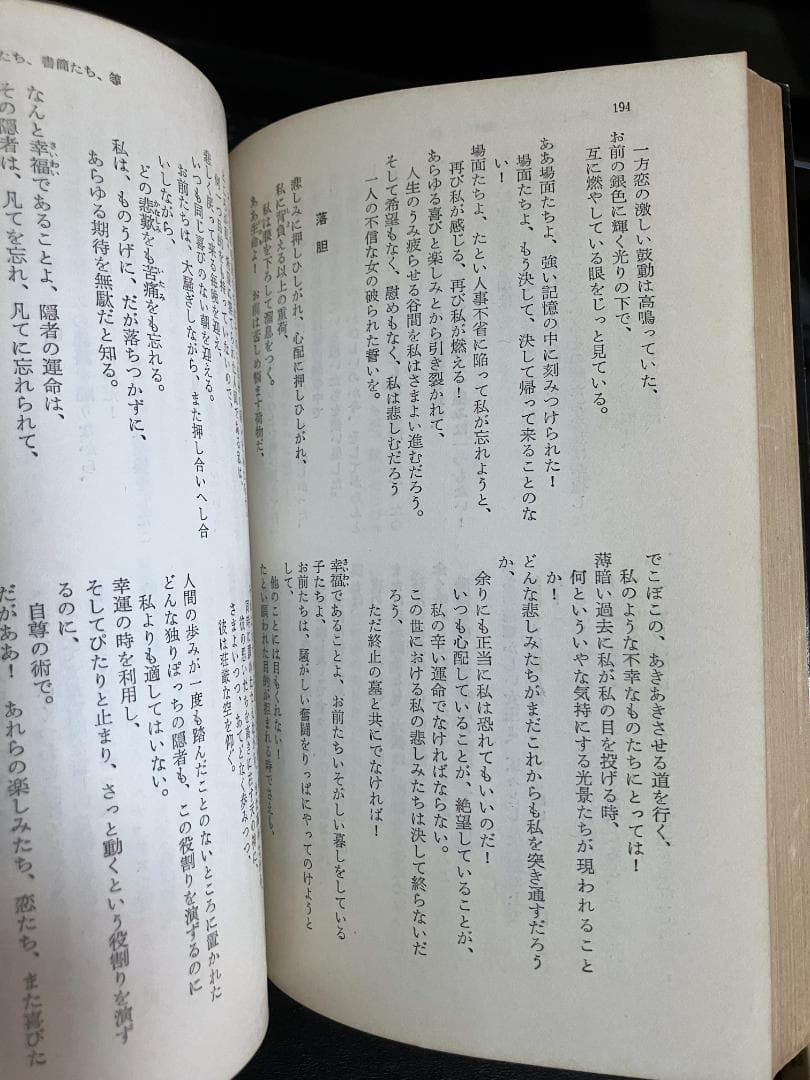 194
一方恋の激しい鼓動は高鳴っていた、
お前の銀色に輝く光りの下で、
互に燃やしている眼をじっと見ている。
ああ場面たちよ、強い記憶の中に刻みつけられた！
場面たちよ、もう決して、決して帰って来ることのな
い！
場面たちよ、たとい人事不省に陥って私が忘れようと、
再び私が感じる、再び私が燃える！
あらゆる喜びと楽しみとから引き裂かれて、
人生のうみ疲らせる谷間を私はさまよい進むだろう。
そして希望もなく、慰めもなく、私は悲しむだろう
一人の不信な女の破られた誓いを。
落胆
悲しみに押しひしがれ、心配に押しひしがれ、
私に背負える以上の重荷、
私は腰を下ろして溜息をつく。
ああ生命よ！　お前は悲しめ悩ます荷物だ、
でこぼこの、あきあきさせる道を行く、
私のような不幸なものたちにとっては！
薄暗い過去に私が私の目を投げる時、
何といういやな気持にする光景たちが現われること
か！
どんな悲しみたちがまだこれからも私を突き通すだろう
か、
余りにも正当に私は恐れてもいいのだ！
いつも心配していることが、絶望していることが、
私の辛い運命でなければならない。
この世における私の悲しみたちは決して終らないだ
ろう、
ただ終止の墓と共にでなければ！
幸福であることよ、お前たちいそがしい暮しをしている
子たちよ、
お前たちは、騒がしい奮闘をりっぱにやってのけようと
して、
他のことには目もくれない！
たとい願われた目的が拒まれる時でさえも、
たち、書簡たち、等
いつも同じ喜びのない朝を迎える。
お前たちは、大騒ぎしながら、また押し合いへし合
いしながら、
どの悲歎をも苦痛をも忘れる。
私は、ものうげに、だが落ちつかずに、
あらゆる期待を無駄だと知る。
なんと幸福であることよ、隠者の運命は、
その隠者は、凡てを忘れ、凡てに忘れられて、
さまよいつつ、あてどなく歩みつつ、
彼は荘厳な空を仰ぐ。
人間の歩みが一度も踏んだことのないところに置かれた
どんな独りぼっちの隠者も、この役割りを演ずるのに
私よりも適してはいない。
幸運の時を利用し、
そしてぴたりと止まり、さっと動くという役割りを演ず
るのに、
自尊の術で。
だがああ！　あれらの楽しみたち、恋たち、また喜びた